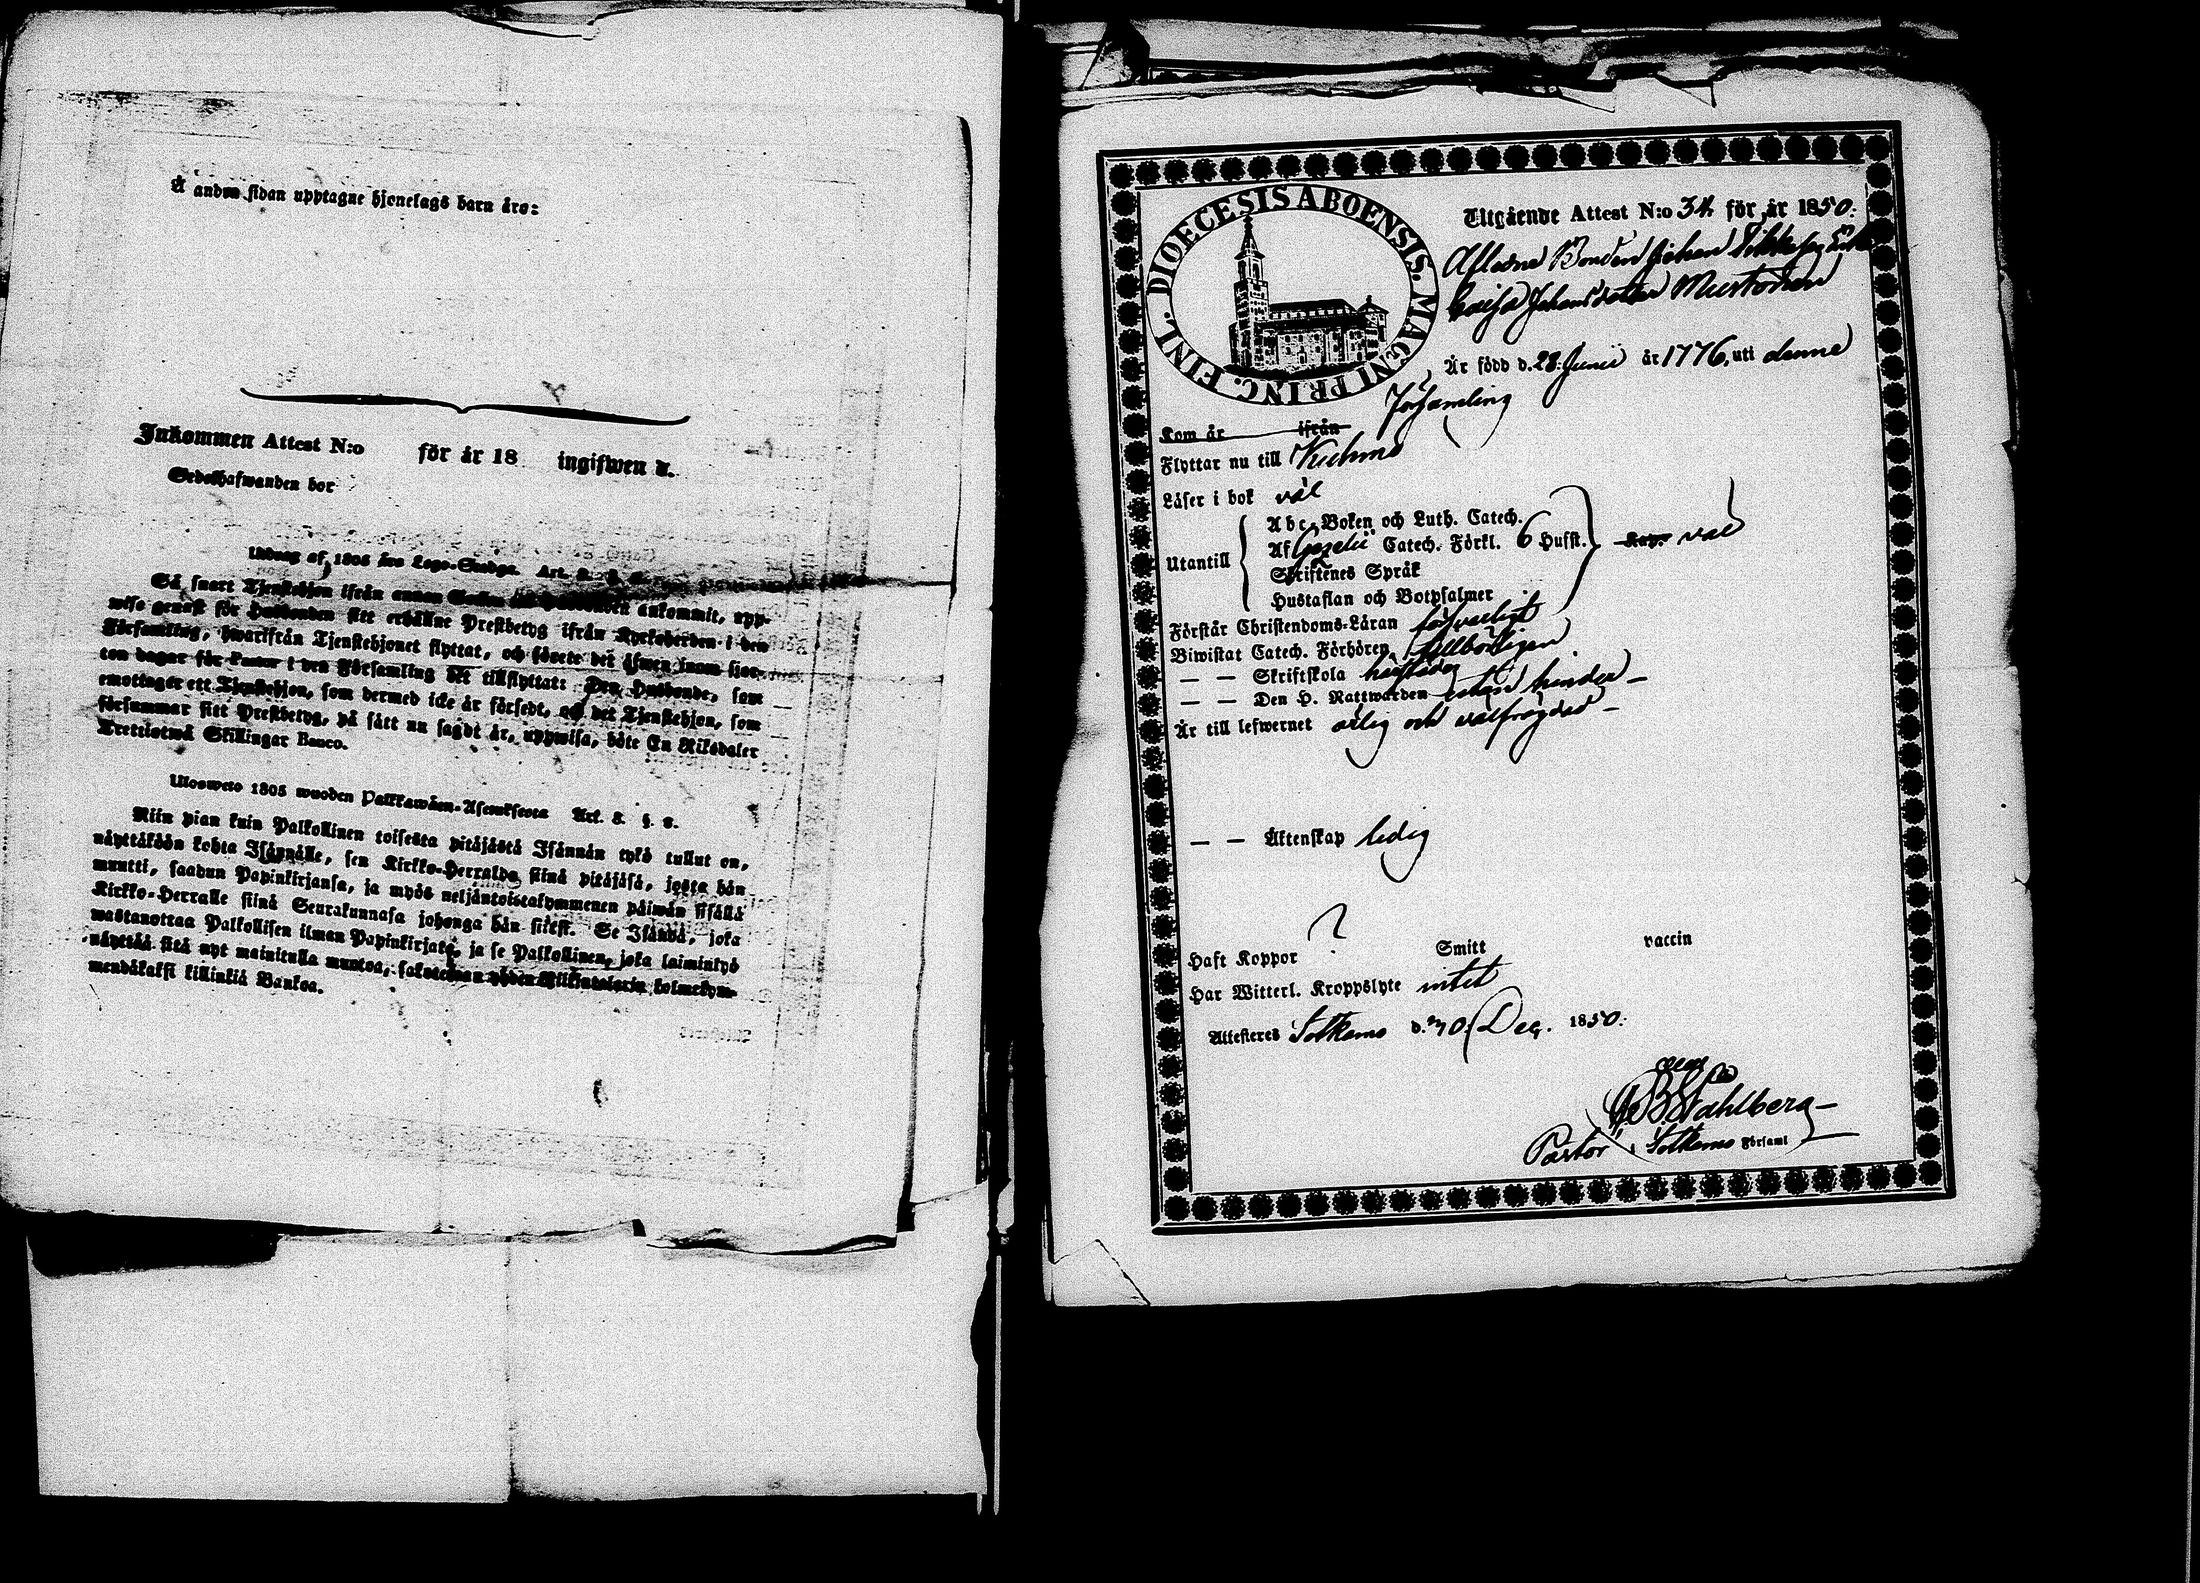 Å andra sidan upptagne hjonelags barn äro:
Inkommen Attest N:o för år 18 ingifwen d.
Sedelhafwanden bor
Utdrag af 1805 års Lego-Stadga. Art. 8. §.
Så snart Tjenstehjon ifrån annan ankommit, upp-
wise genast för Husbonden sitt erhållne Prestbetyg ifrån Kyrkoherden i den
Församling, hwarifrån Tjenstehjonet flyttat, och förete det äfwen inom fjor-
ton dagar för i den Församling det tillflyttat: Den Husbonde, som
emottager ett Tjenstehjon, som dermed icke är försedt, och det Tjenstehjon, som
försummar sitt Prestbetyg, på sätt nu sagdt är, uppwisa, böte En Riksdaler
Trettiotwå Skillingar Banco.
Ulosweto 1805 wuoden Palkkawäen-Asetuksesta Art. 8. §.
Niin pian kuin Palkollinen toisesta pitäjästä Isännän tykö tullut on,
näyttäköön kohta Isännälle, sen Kirkko-Herralda siinä pitäjäsä, josta hän
muutti, saadun Papinkirjansa, ja myös neljäntoistakymmenen päiwän sisällä
Kirkko-Herralle siinä Seurakunnasa johonga hän siirsi. Se Isändä, joka
wastanottaa Palkollisen ilman Papinkirjata, ja se Palkollinen, joka laiminlyö
näyttää sitä nyt mainitulla muotoa, kolmekym-
mendäkaksi killinkiä Bankoa.
DIOECESIS ABOENSIS. MAGNI PRINC. FINL.
Utgående Attest N:o 34 för år 1850.
Afledne Bonden Johan
Caisa Johansdotter Mustonen
Är född d. 28 Junii år 1776, uti denne
Församling
Kom år ifrån
Flyttar nu till Kuhmo
Läser i bok väl
Abc-Boken och Luth. Catech.
Af Gezelii Catech. Förkl. 6 Hufst. väl
Utantill
Skriftenes Språk
Hustaflan och Botpsalmer
Förstår Christendoms-Läran försvarligt
Biwistat Catech. Förhören tillbörligen
— — Skriftskola
— — Den H. Nattwarden utan hinder —
Är till lefwernet ärlig och välfräjdad —
— — Äktenskap ledig
Haft Koppor ? Smitt vaccin
Har Witterl. Kroppslyte intet
Attesteres Sotkamo d. 30 Dec. 1850.
Stahlberg —
Pastor i Sotkamo Församl